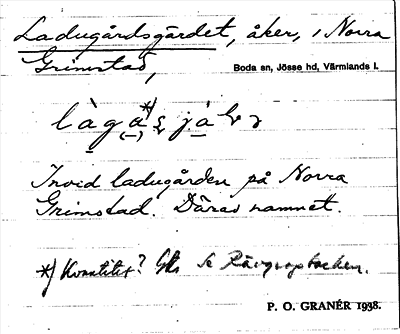 Ladugårdsgärdet, åker, i Norra
Grimstad,
Boda sn, Jösse hd, Värmlands l.
Invid ladugården på Norra
Grimstad. Däras namnet.
*) Kvantitet? Se Rävgropbacken.
P. O. GRANÉR 1938.